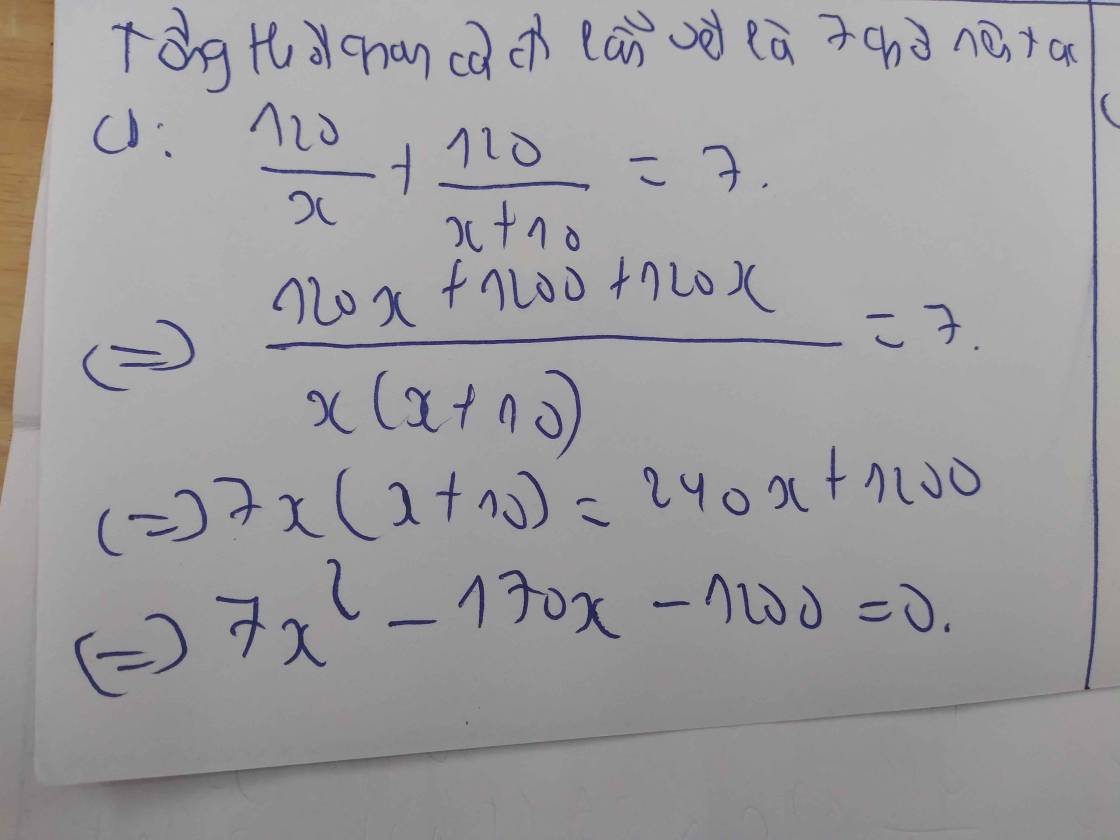 Tổng thời gian cả đi lẫn về là 7 giờ nên ta
có: 120/x + 120/(x+10) = 7.
(=) (120x + 1200 + 120x)/(x(x+10)) = 7.
(=) 7x(x+10) = 240x + 1200
(=) 7x² - 170x - 1200 = 0.